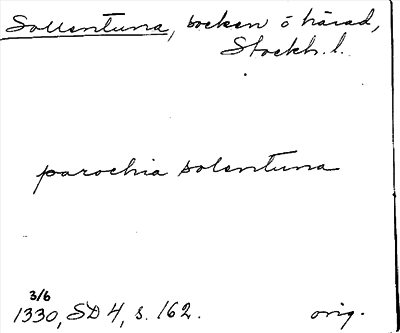 Sollentuna, socken o härad,
Stockh. l.
parochia solentuna
3/6
1330, SD 4, s. 162. orig.